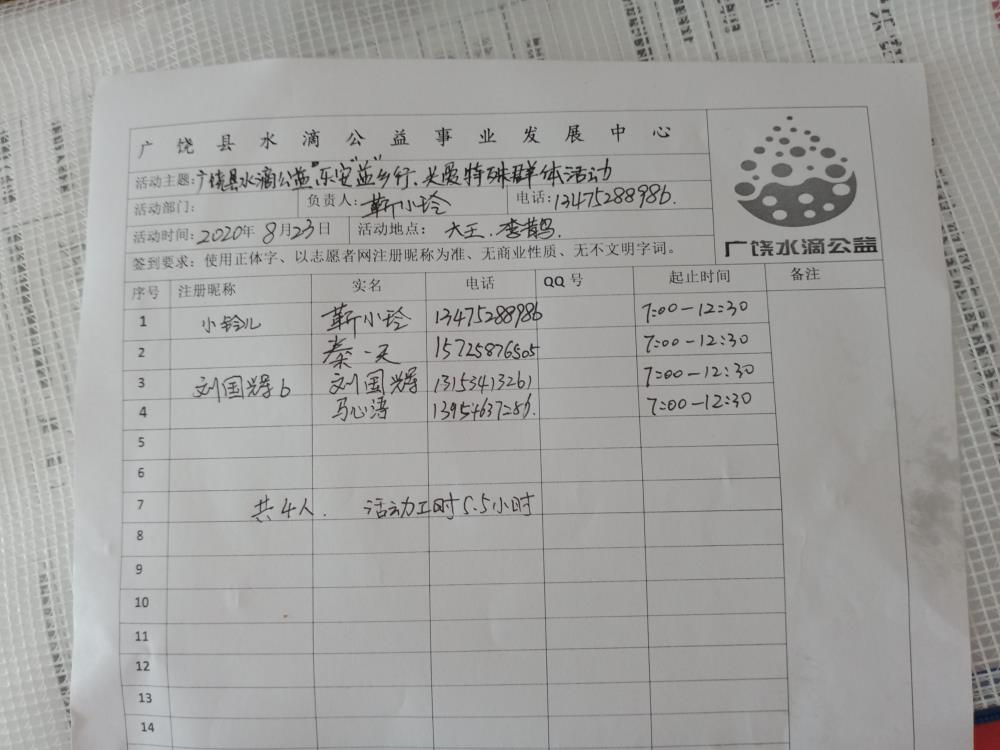 广饶县水滴公益事业发展中心
活动主题:广饶县水滴公益"乐安益"乡行、关爱特殊群体活动
活动部门: 负责人:靳小玲 电话:13475288986.
活动时间:2020年8月23日 活动地点:大王、李鹊.
签到要求:使用正体字、以志愿者网注册昵称为准、无商业性质、无不文明字词。
广饶水滴公益
序号 注册昵称 实名 电话 QQ号 起止时间 备注
1 小铃儿 靳小玲 13475288986 7:00-12:30
2 秦一天 15725876505 7:00-12:30
3 刘国辉b 刘国辉 13153413261 7:00-12:30
4 马心涛 13954637286. 7:00-12:30
5
6
7 共4人. 活动工时5.5小时
8
9
10
11
12
13
14